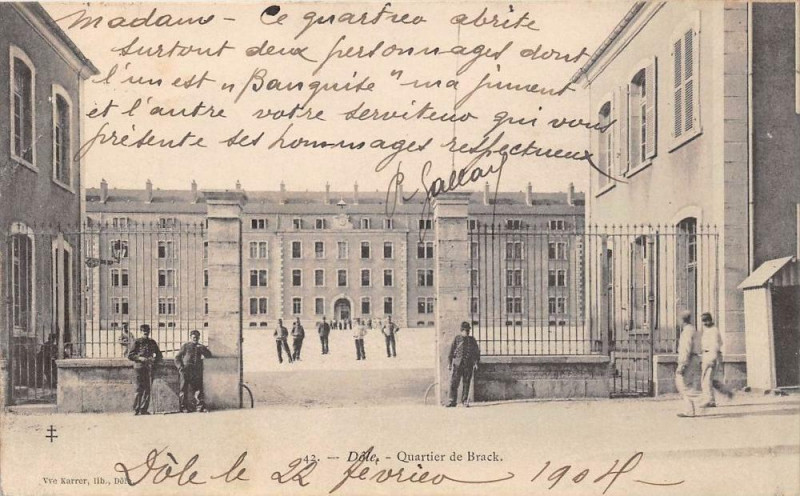 Madame - Ce quartier abrite
surtout deux personnages dont
l'un est "Banquise" ma jument
et l'autre votre serviteur qui vous
présente ses hommages respectueux
42. — Dôle. - Quartier de Brack.
Vve Karrer, lib., Dôle
Dôle le 22 février 1904 -